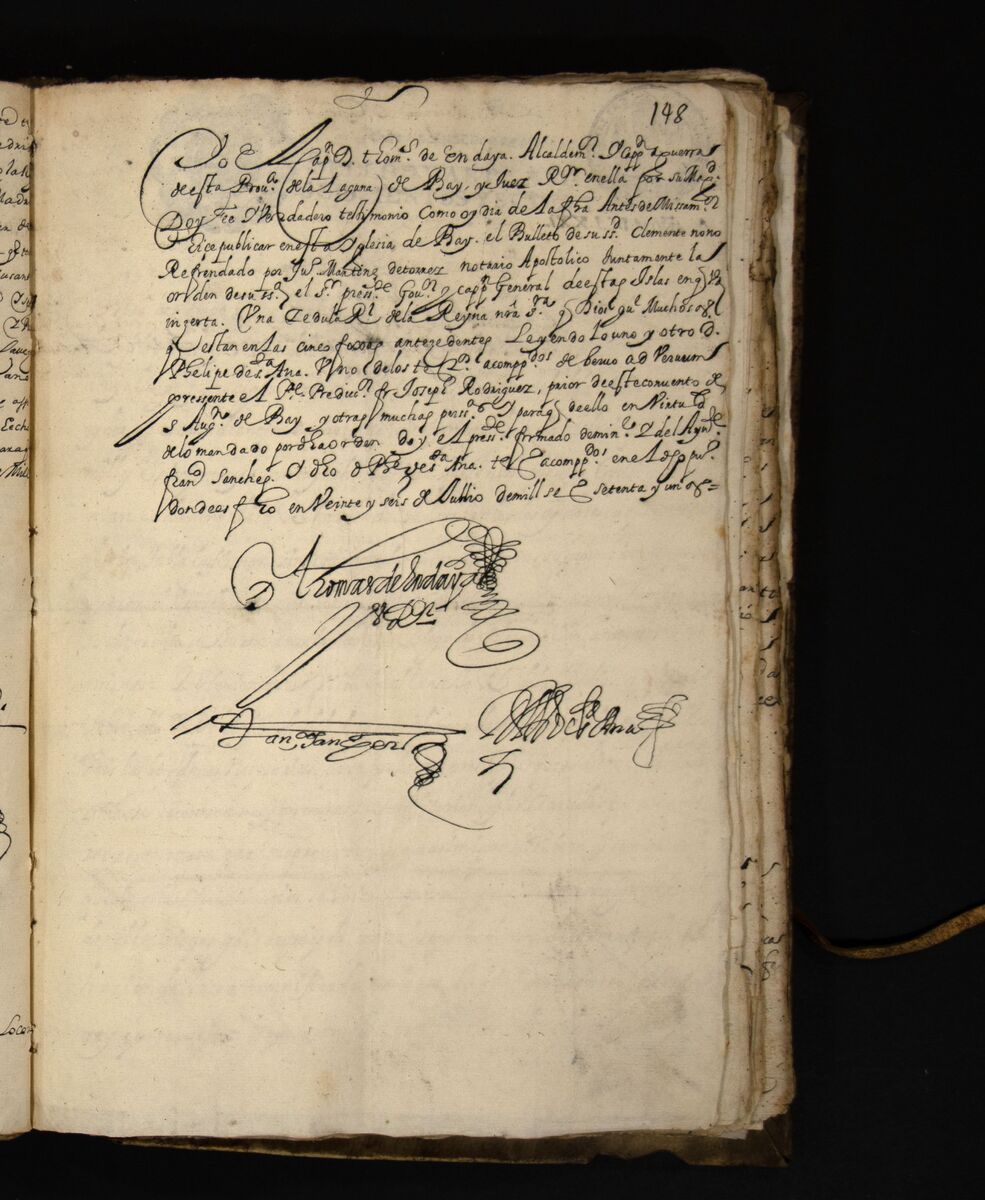 148
Yo El Capn D. thoms. de Endaya. Alcalde mr. Y Cappn aguerra
de esta Prouа. de la Laguna de Bay, y Juez Rr. en ella por su Magd.
Doy fee Y Verdadero testimonio como oy dia de la fha Antes de Missa mor
hice publicar en esta Yglesia de Bay. el Bulleto de su ssd. Clemente nono
Refrendado por Jus. Martinez de torrez notario Apostolico Juntamente la
orden de su ssa. el Sr. pressde. Gour. y cappn General de estas Islas en q Va
inserta. Una Zedula Rl. de la Reyna nra Sra. q Dios ge. Muchos as
q estan en las cinco foxas antezedentes Leyendo lo uno y otro D.
Phelipe de sta Ana. Uno de los tos. acomppdos de vervo ad Verum
pressente el Pe. Predicr. fr Joseph Rodriguez, prior de este conuento de
S Augn. de Bay y otras muchas perssas Y para q de ello en Virtud
de lo mandado por dha orden doy el press.te firmado de mi ne. Y del Ayude.
frand Sanches. Y dho D Phe de sta Ana. tos acomppdos en el
donde es fho en Veinte y seis de Jullio de mill ses setenta y un as =
D Thomas de Endaya
Franco Sanchez